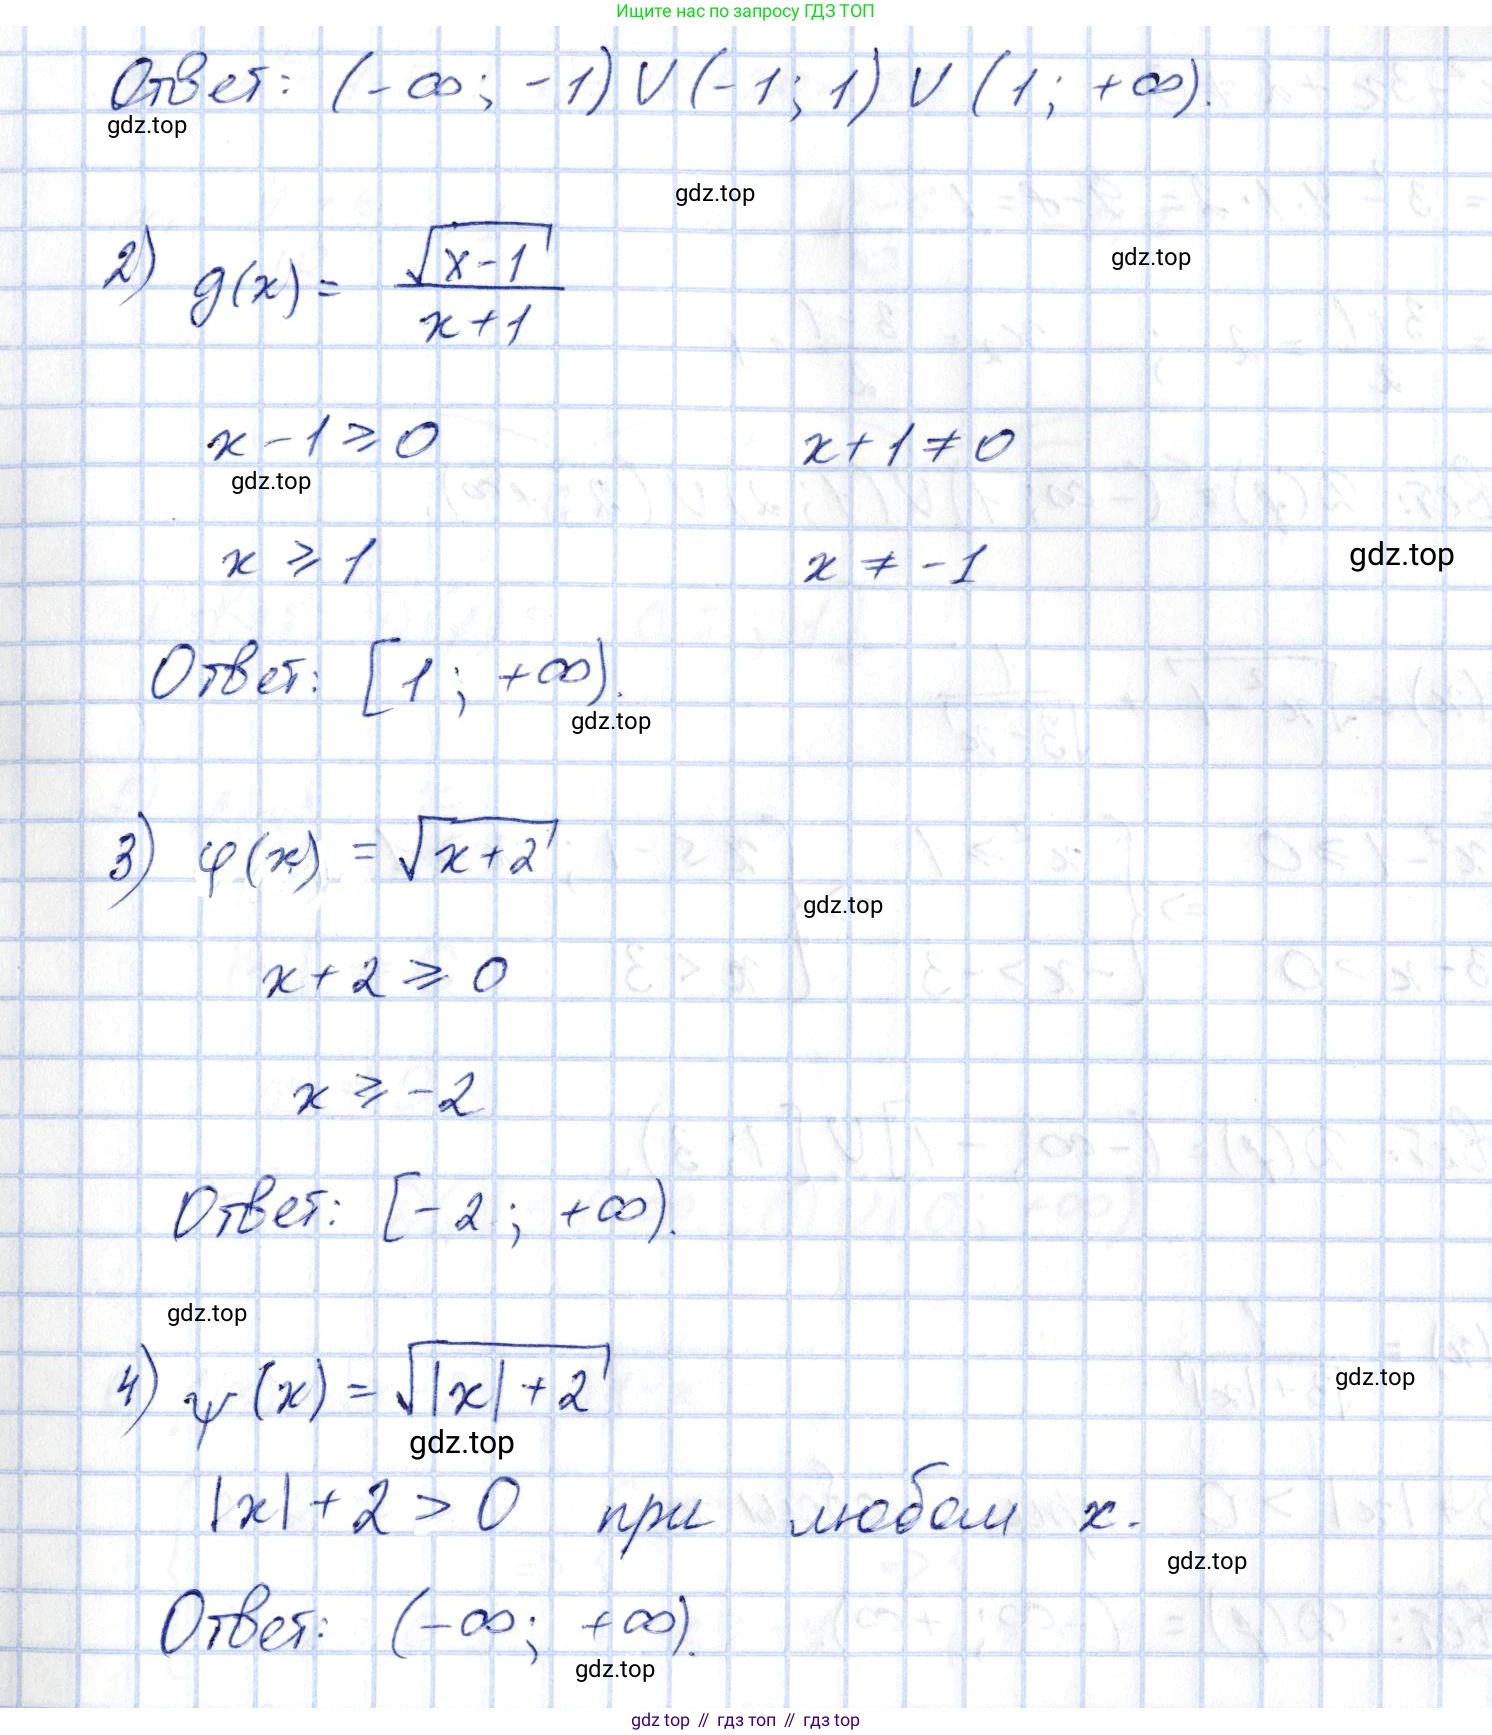 Ищите нас по запросу ГДЗ ТОП
Ответ: (-∞; -1) ∪ (-1; 1) ∪ (1; +∞).
gdz.top
gdz.top
gdz.top
2) g(x) = √(x-1) / (x+1)
x-1 ⩾ 0 x+1 ≠ 0
gdz.top
x ⩾ 1 x ≠ -1
gdz.top
Ответ: [1; +∞).
gdz.top
3) φ(x) = √(x+2)
gdz.top
x+2 ⩾ 0
x ⩾ -2
Ответ: [-2; +∞).
gdz.top
4) ψ(x) = √(|x|+2)
gdz.top
gdz.top
|x|+2 > 0 при любом x.
gdz.top
Ответ: (-∞; +∞).
gdz.top
gdz top // гдз топ // гдз top